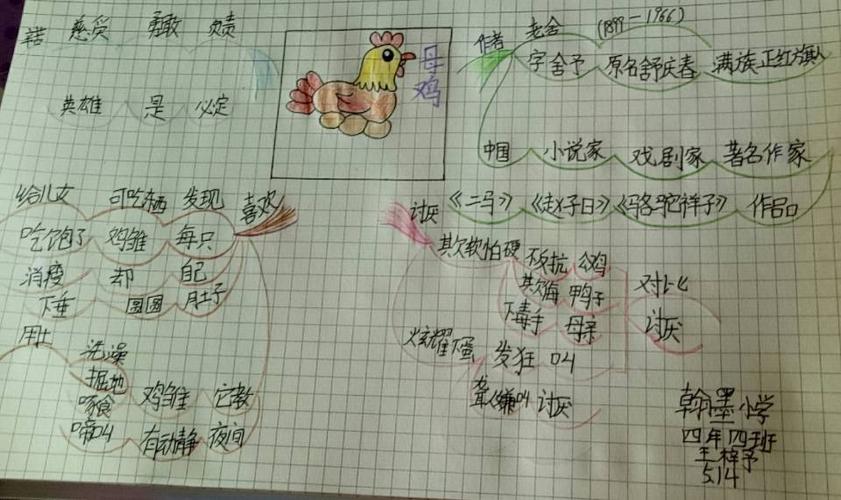 慈爱 勇敢 负责
英雄 是 必定
母鸡
作者 老舍 (1899-1966)
字舍予 原名舒庆春 满族正红旗人
中国 小说家 戏剧家 著名作家
《二马》《赵子曰》《骆驼祥子》 作品
喜欢
给儿女 可吃的 发现
吃饱了 鸡雏 每只
消瘦 却 自己
下垂 圆圆 肚子
用土
洗澡
掘地
啄食 鸡雏 它教
啼叫 有动静 夜间
讨厌
欺软怕硬 不反抗 公鸡
欺侮 鸭子
下毒手 母亲
对比
讨厌
炫耀下蛋 发狂 叫
聋人嫌叫 讨厌
翰墨小学
四年四班
王梓予
5.14